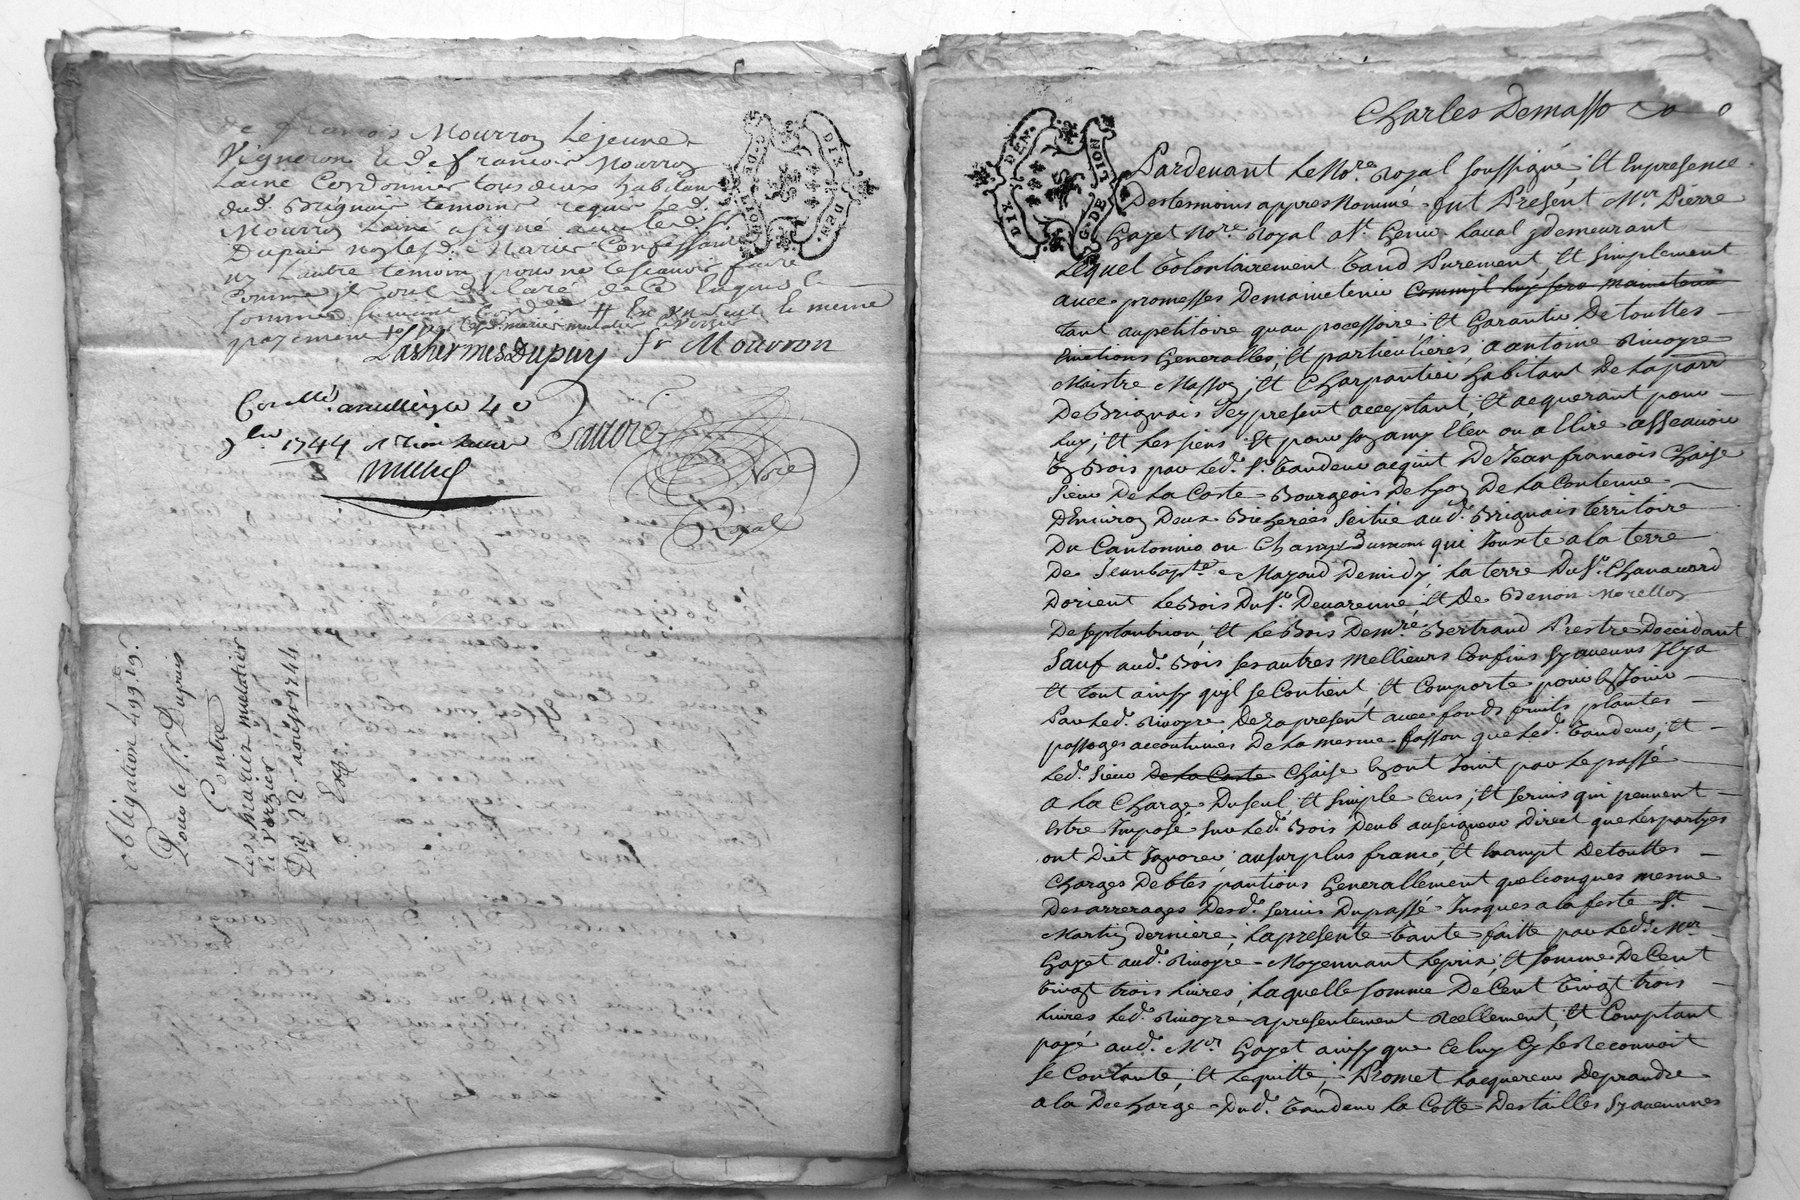 de francois Mourron Lejeune
Vigneron & de francois Mourron
Laine Cordonnier tous deux habitans
dud. Brignais temoins requis led.
Mourron Laine a signé avec led. Sr.
Dupuis non lesd. Mariés Confessants
ny Lautre temoin pour ne le scavoir faire
comme ils ont declaré de ce Enquis
payement
G. DE LION DIX DEN.
Lashermes Dupuy fr Mourron
Con.lle a
9bre 1744
Nre
Royal
obligation 499lt 19s.
Pour le Sr Dupuis
Contre
Les mariés mulatier
Le Verzier
Du 22 1744
Exp.
Charles Demasso
DIX DEN. G. DE LION
Pardevant Le Nore Royal soussigné, Et En presence
Des tesmoins appres Nommé fut Present Mr. Pierre
Gayet Nore Royal a St. Genis Laval y demeurant
Lequel Volontairement Vand Purement, Et simplement
avec promesses De maintenir
tant au petitoire quau pocessoire Et Garantir De touttes
Evictions Generalles, Et particulieres, a antoine Rivoyre
Maistre Masson, Et Charpantier habitant De La parr
De Brignais Icy present acceptant, Et acquerant pour
Luy, Et Les siens Et pour son amy Eleu ou a Elire assçavoir
Un Bois par Led. Sr. Vandeur acquit De Jean francois Chaise
sieur De La Coste Bourgeois De Lyon De La Contenue
D'Environ Deux Bicherées scitué aud. Brignais territoire
Du Cantonnio ou Champ Dumont qui Jouxte a la terre
De Jean bapte. Mazoud De midy, La terre Du Sr. Chanavard
Dorient Le Bois Du Sr. Devarenne, Et De Benon Morellon
De septantrion, Et Le Bois De mre Bertrand Prestre Doccidant
Sauf aud. Bois ses autres Mellieurs Confins sy aucuns Il y a
Et tout ainsy quil se Contient, Et Comporte pour En Jouir
Par Led. Rivoyre Dez a present avec fonds fruits plantes
passages accoutumés De La mesme fasson que Led. Vandeur, Et
Led. sieur De La Coste Chaise En ont Jouit par Le passé
a La Charge Du seul, Et simple Cens, Et servis qui peuvent
Estre Imposé sur Led. Bois Deub au seigneur Direct que Les partyes
ont Dit Ignorer, au surplus franc, Et Exampt De touttes
Charges Debtes pantions Generallement quelconques mesme
Des arrerages Desd. servis Du passé Jusques a la feste St.
Martin derniere, La presente Vante faitte par Led. Mr.
Gayet aud. Rivoyre Moyennant Le prix, Et somme De Cent
Vingt trois Livres, Laquelle somme De Cent Vingt trois
Livres Led. Rivoyre a presentement Reellement, Et Comptant
payé aud. Mr. Gayet ainsy que Celuy Cy Le Reconnoit
se Contante, Et Lequitte, Promet Lacquereur De prandre
a la Decharge Dud. Vandeur La Cotte Des tailles sy aucunnes